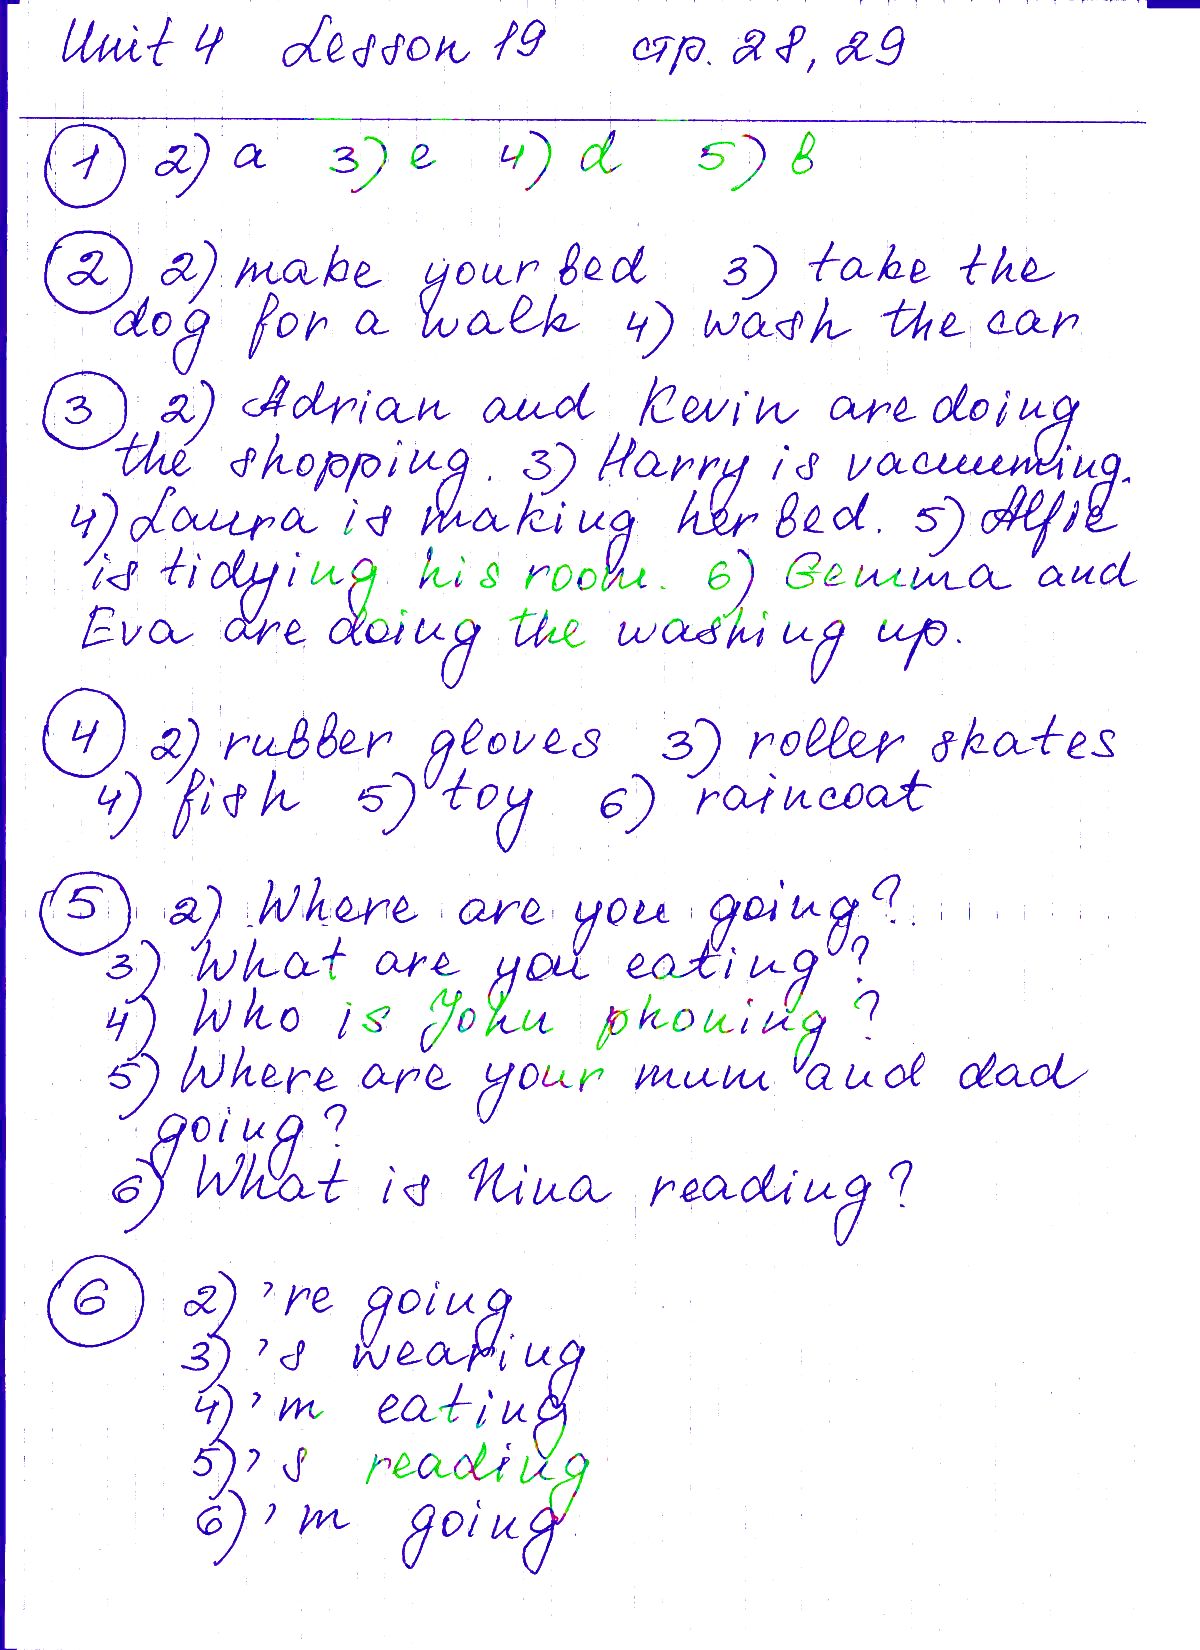 Unit 4 Lesson 19 стр. 28, 29
1 2) a 3) e 4) d 5) b
2 2) make your bed 3) take the
dog for a walk 4) wash the car
3 2) Adrian and Kevin are doing
the shopping. 3) Harry is vacuuming.
4) Laura is making her bed. 5) Alfie
is tidying his room. 6) Gemma and
Eva are doing the washing up.
4 2) rubber gloves 3) roller skates
4) fish 5) toy 6) raincoat
5 2) Where are you going?
3) What are you eating?
4) Who is John phoning?
5) Where are your mum and dad
going?
6) What is Nina reading?
6 2) 're going
3) 's wearing
4) 'm eating
5) 's reading
6) 'm going